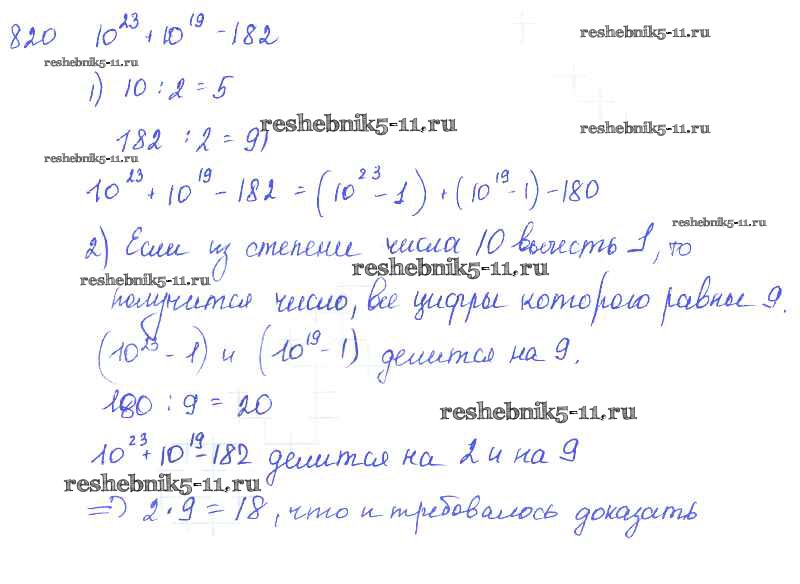 820 10²³ + 10¹⁹ - 182
reshebnik5-11.ru
reshebnik5-11.ru
1) 10 : 2 = 5
182 : 2 = 91
reshebnik5-11.ru
reshebnik5-11.ru
reshebnik5-11.ru
10²³ + 10¹⁹ - 182 = (10²³ - 1) + (10¹⁹ - 1) - 180
reshebnik5-11.ru
2) Если из степени числа 10 вычесть 1, то
reshebnik5-11.ru
reshebnik5-11.ru
получится число, все цифры которого равны 9.
(10²³ - 1) и (10¹⁹ - 1) делится на 9.
180 : 9 = 20
reshebnik5-11.ru
10²³ + 10¹⁹ - 182 делится на 2 и на 9
reshebnik5-11.ru
=> 2 · 9 = 18, что и требовалось доказать